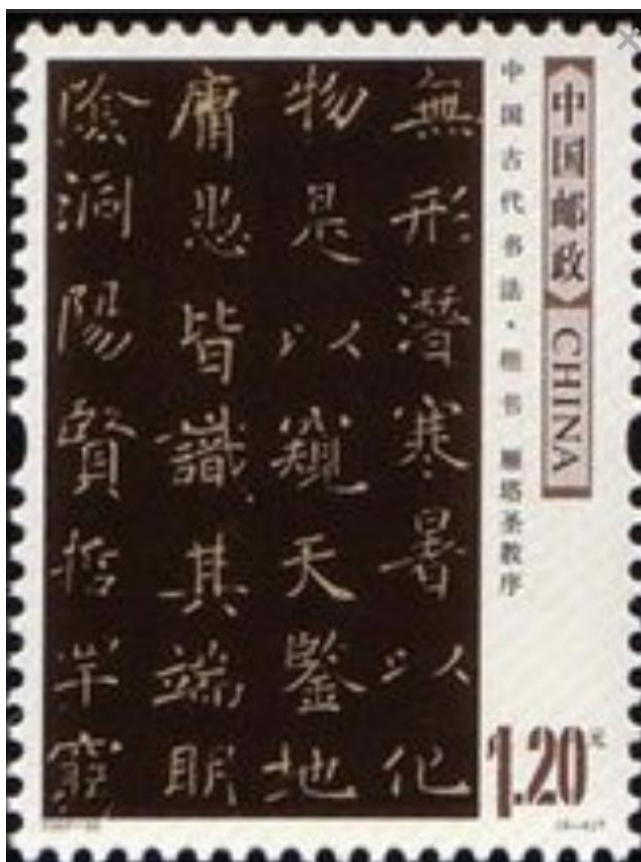 中国邮政 CHINA
中国古代书法·楷书 雁塔圣教序
無形潛寒暑以化
物是以窺天鑒地
庸愚皆識其端明
陰洞陽賢哲罕窮
1.20元